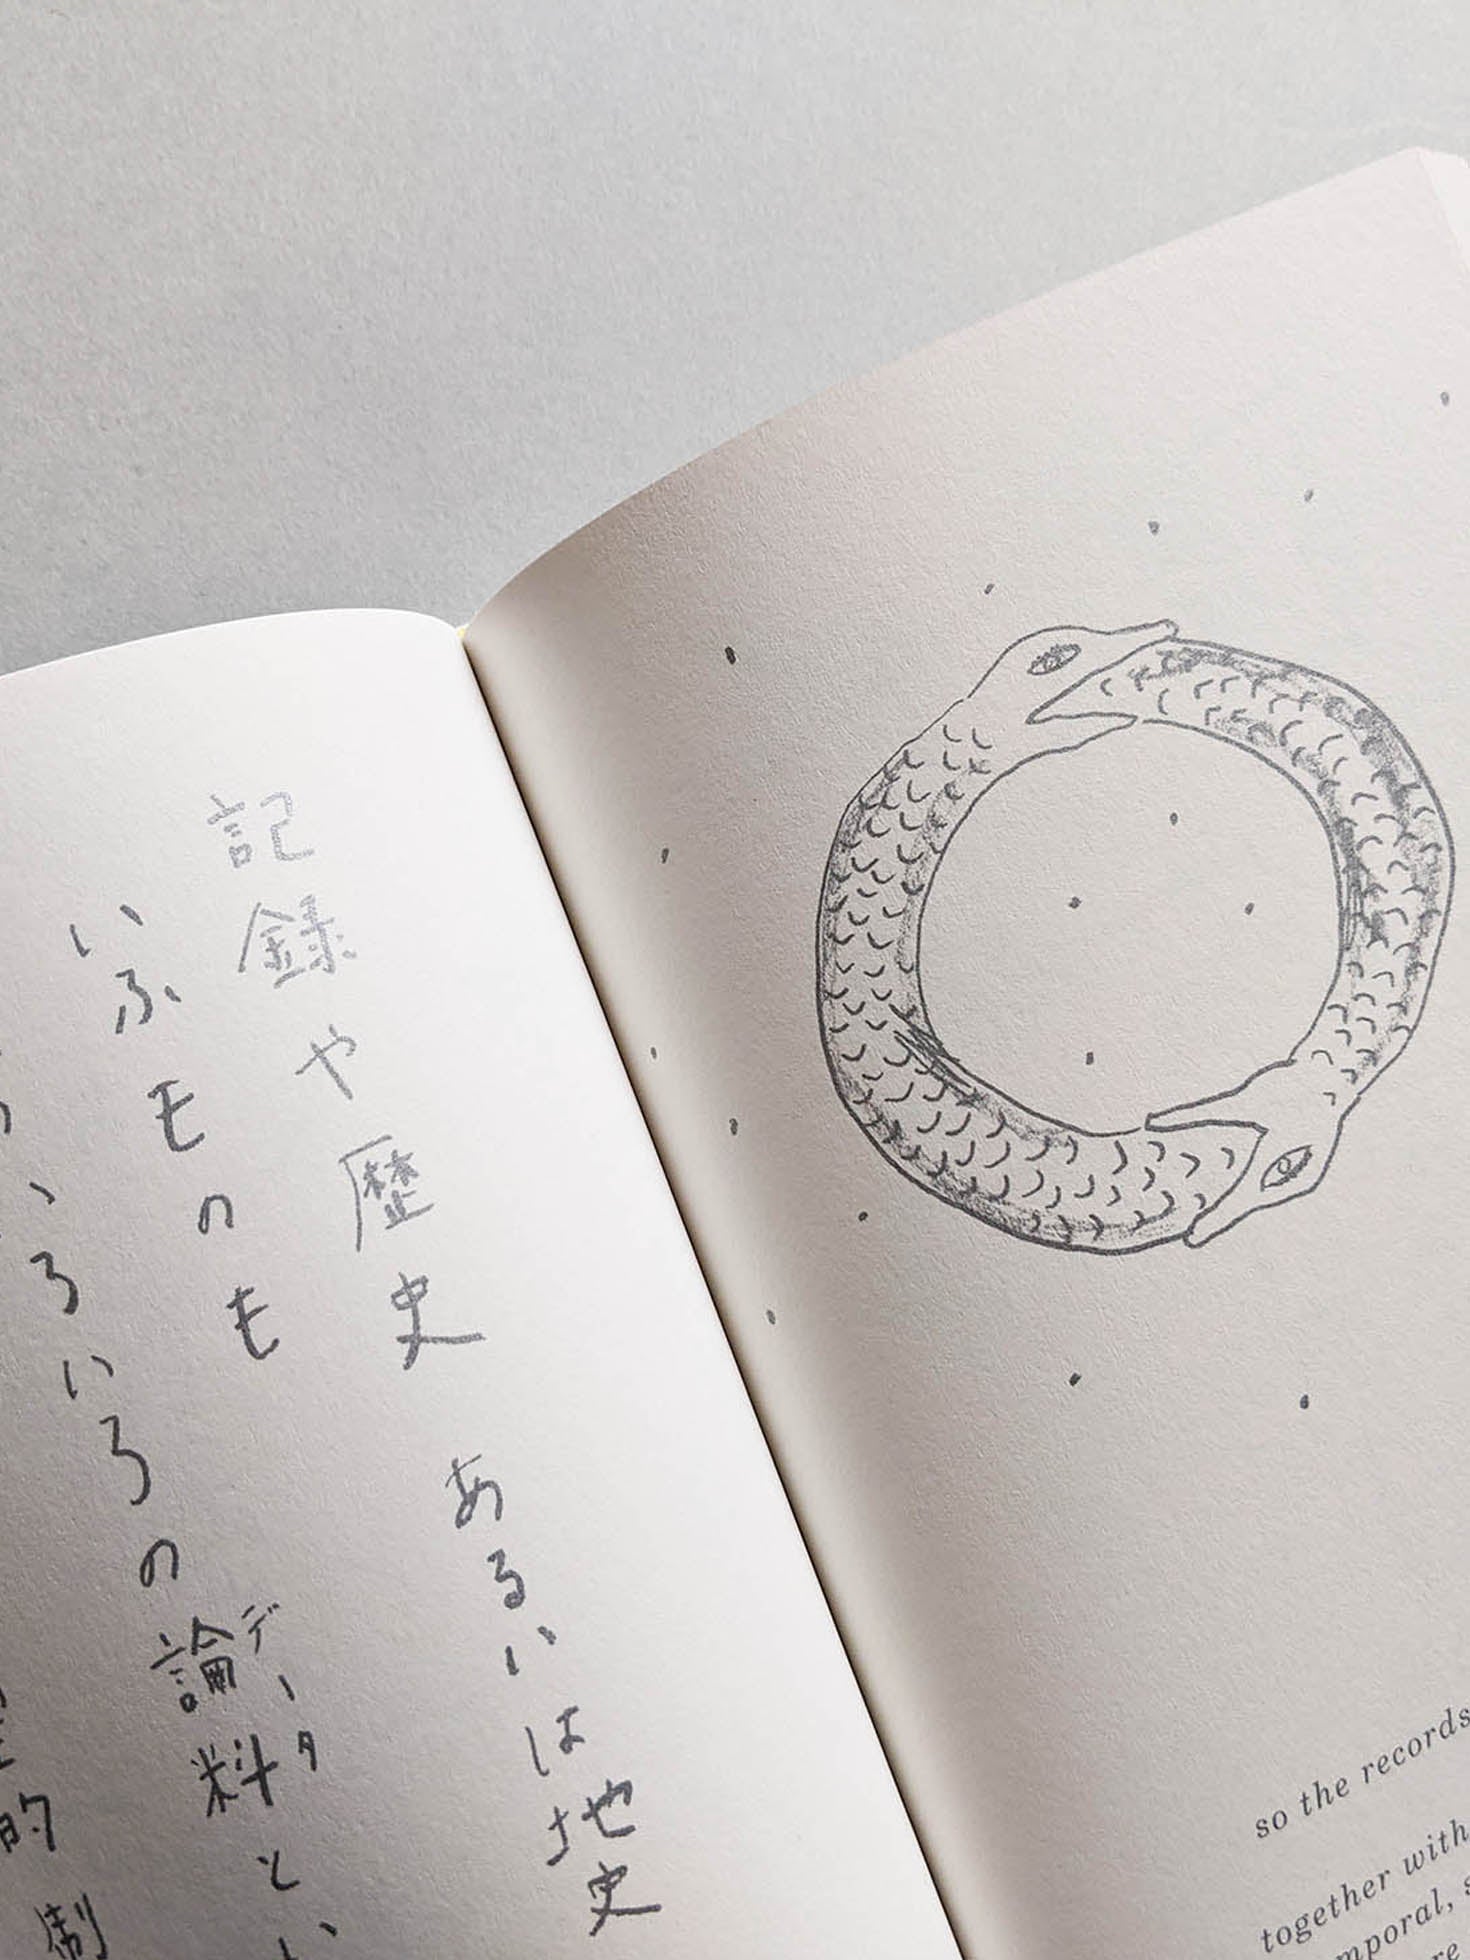 記録や歴史 あるいは地史
いふものも
いろいろの論料と
データ
的制
so the records
together with
mporal, s
re